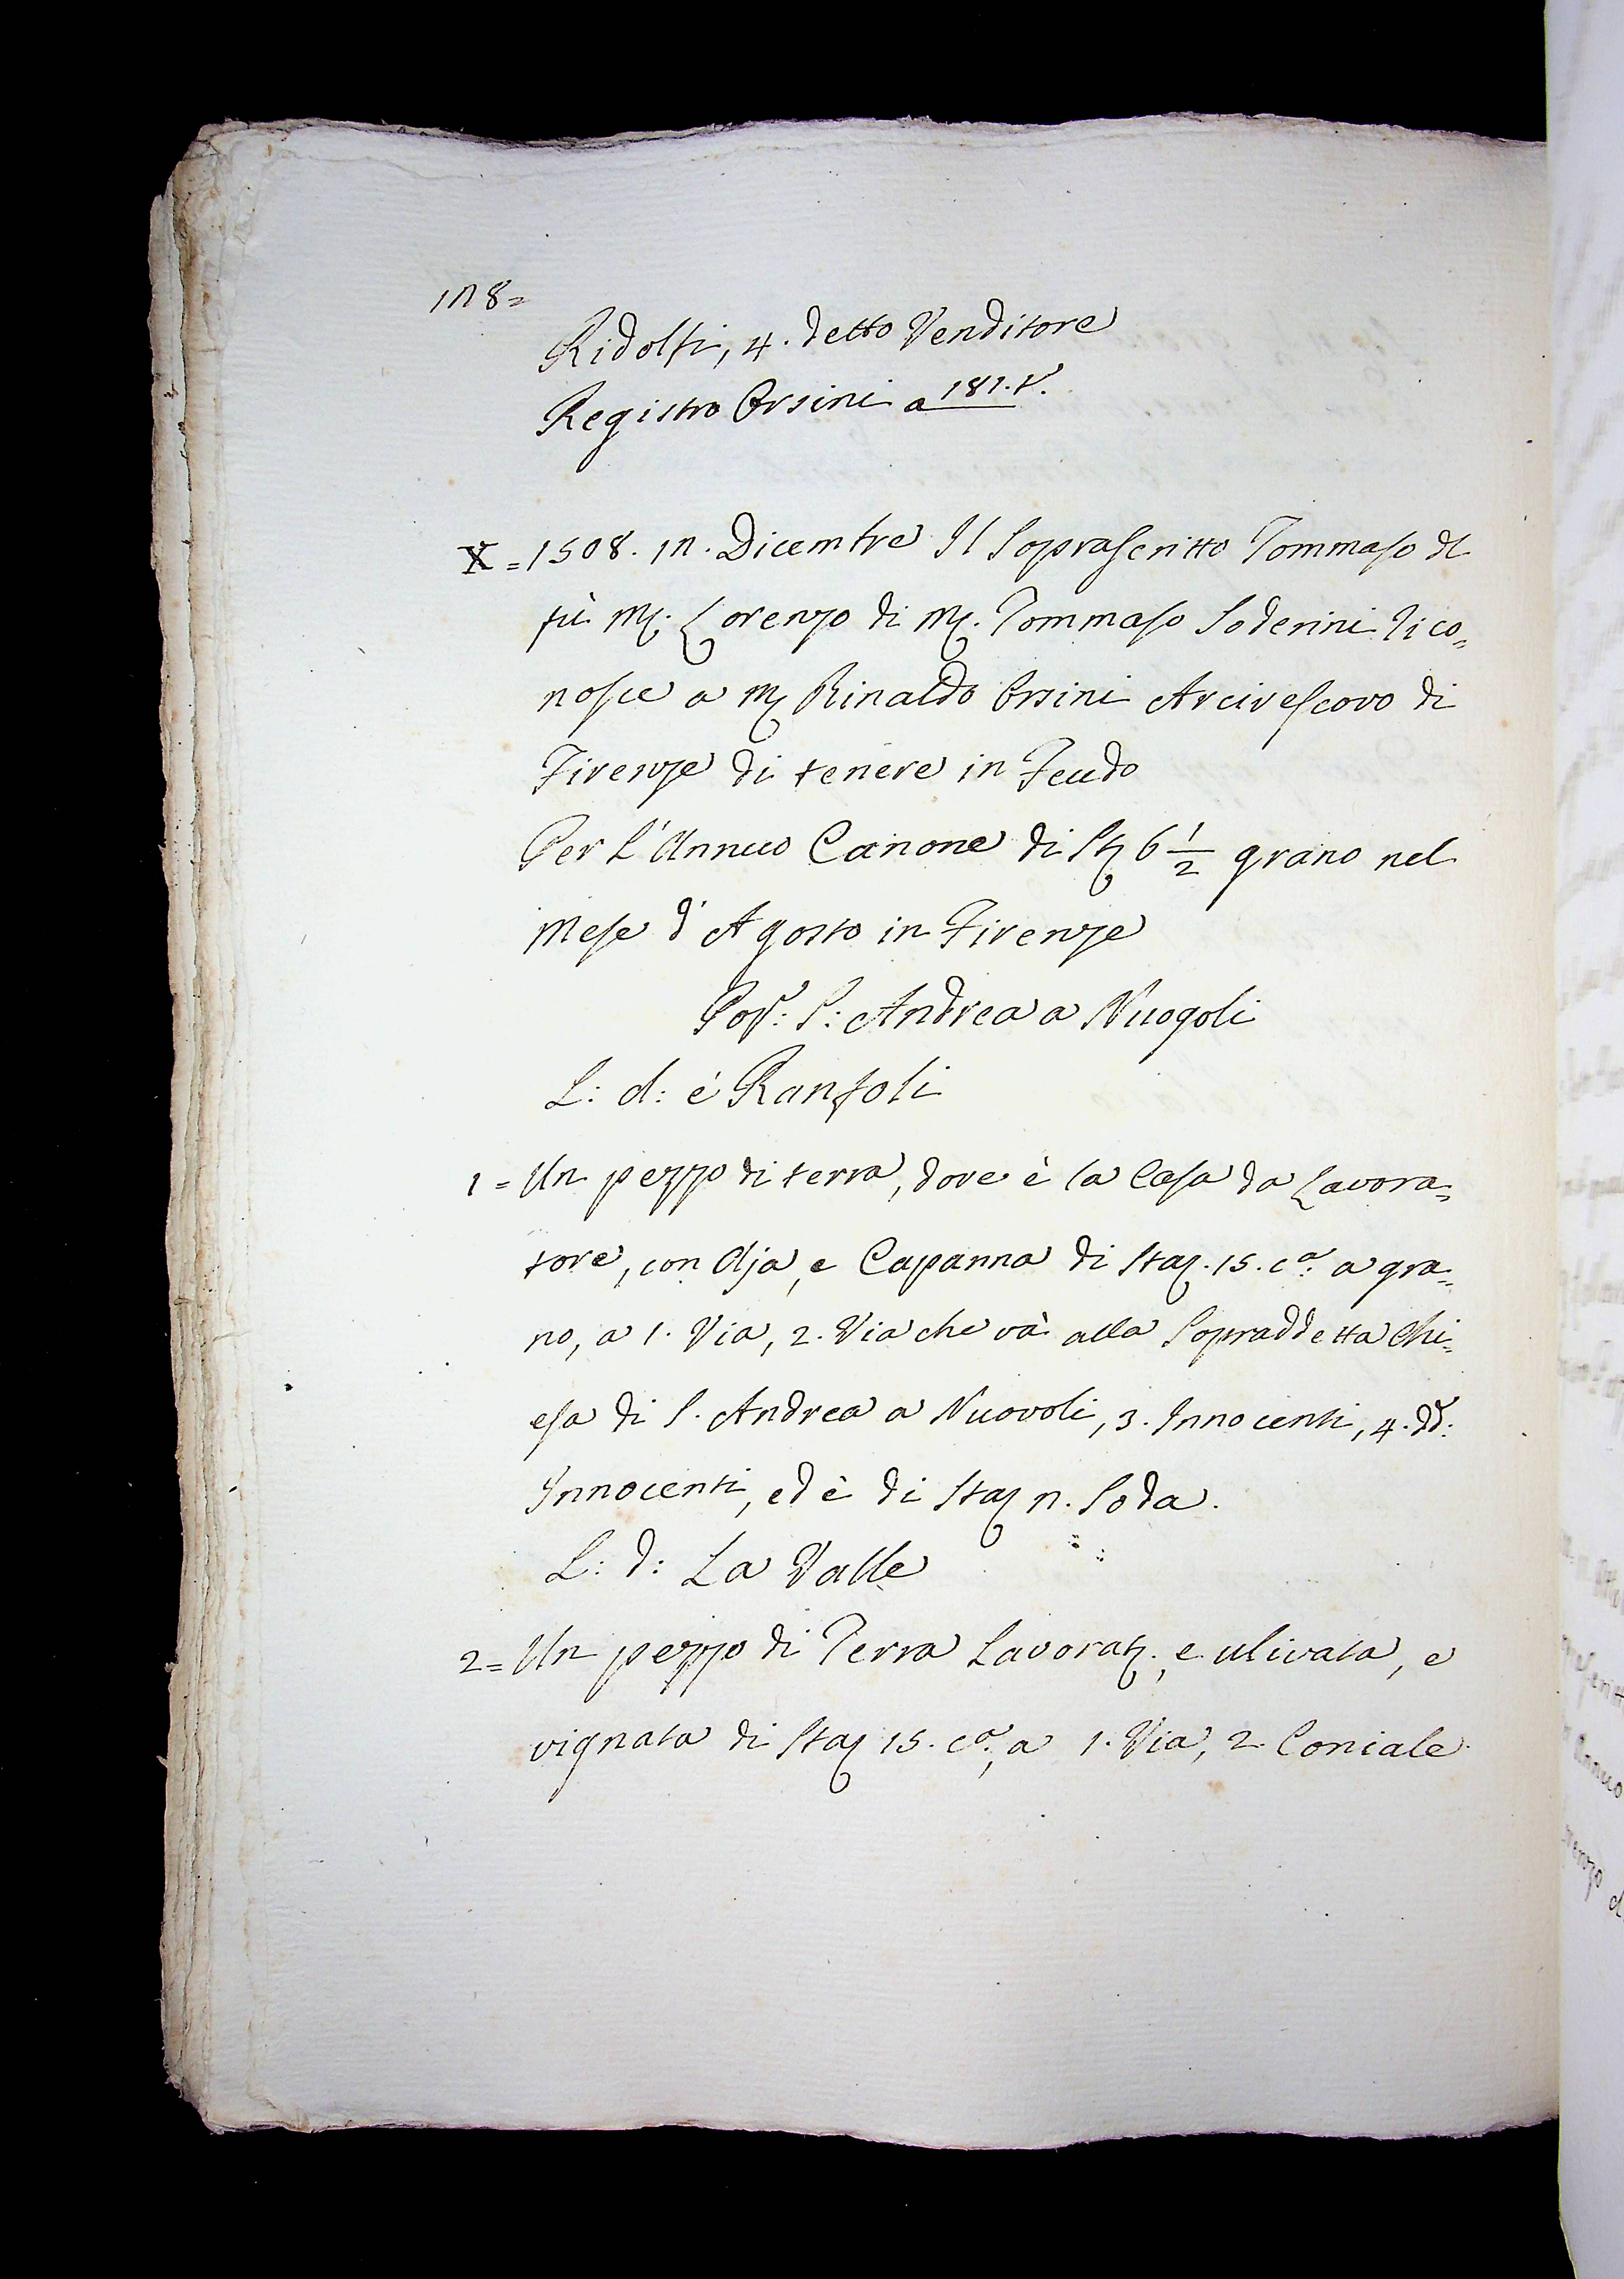 178=
Ridolfi, 4. detto Venditore
Registro Orsini a 181.v.
X = 1508. 17. Dicembre Il Soprascritto Tommaso del
fù M. Lorenzo di M. Tommaso Soderini rico=
nosce a M Rinaldo Orsini Arcivescovo di
Firenze di tenere in Feudo
Per L'Annuo Canone di St 6 1/2 grano nel
Mese d'Agosto in Firenze
Pop: S: Andrea a Nuogoli
L: d: è Ranfoli
1 = Un pezzo di terra, dove è la Casa da Lavora=
tore, con Aja, e Capanna di Sta. 15. ca: a gra=
no, a 1. Via, 2. Via che và alla Sopraddetta Chi=
esa di S. Andrea a Nuovoli, 3. Innocenti, 4. dd:
Innocenti, ed è di Sta 7. Soda.
L: d: La Valle
2 = Un pezzo di Terra Lavorat., e ulivata, e
vignata di Sta 15. ca:, a 1. Via, 2. Coniale